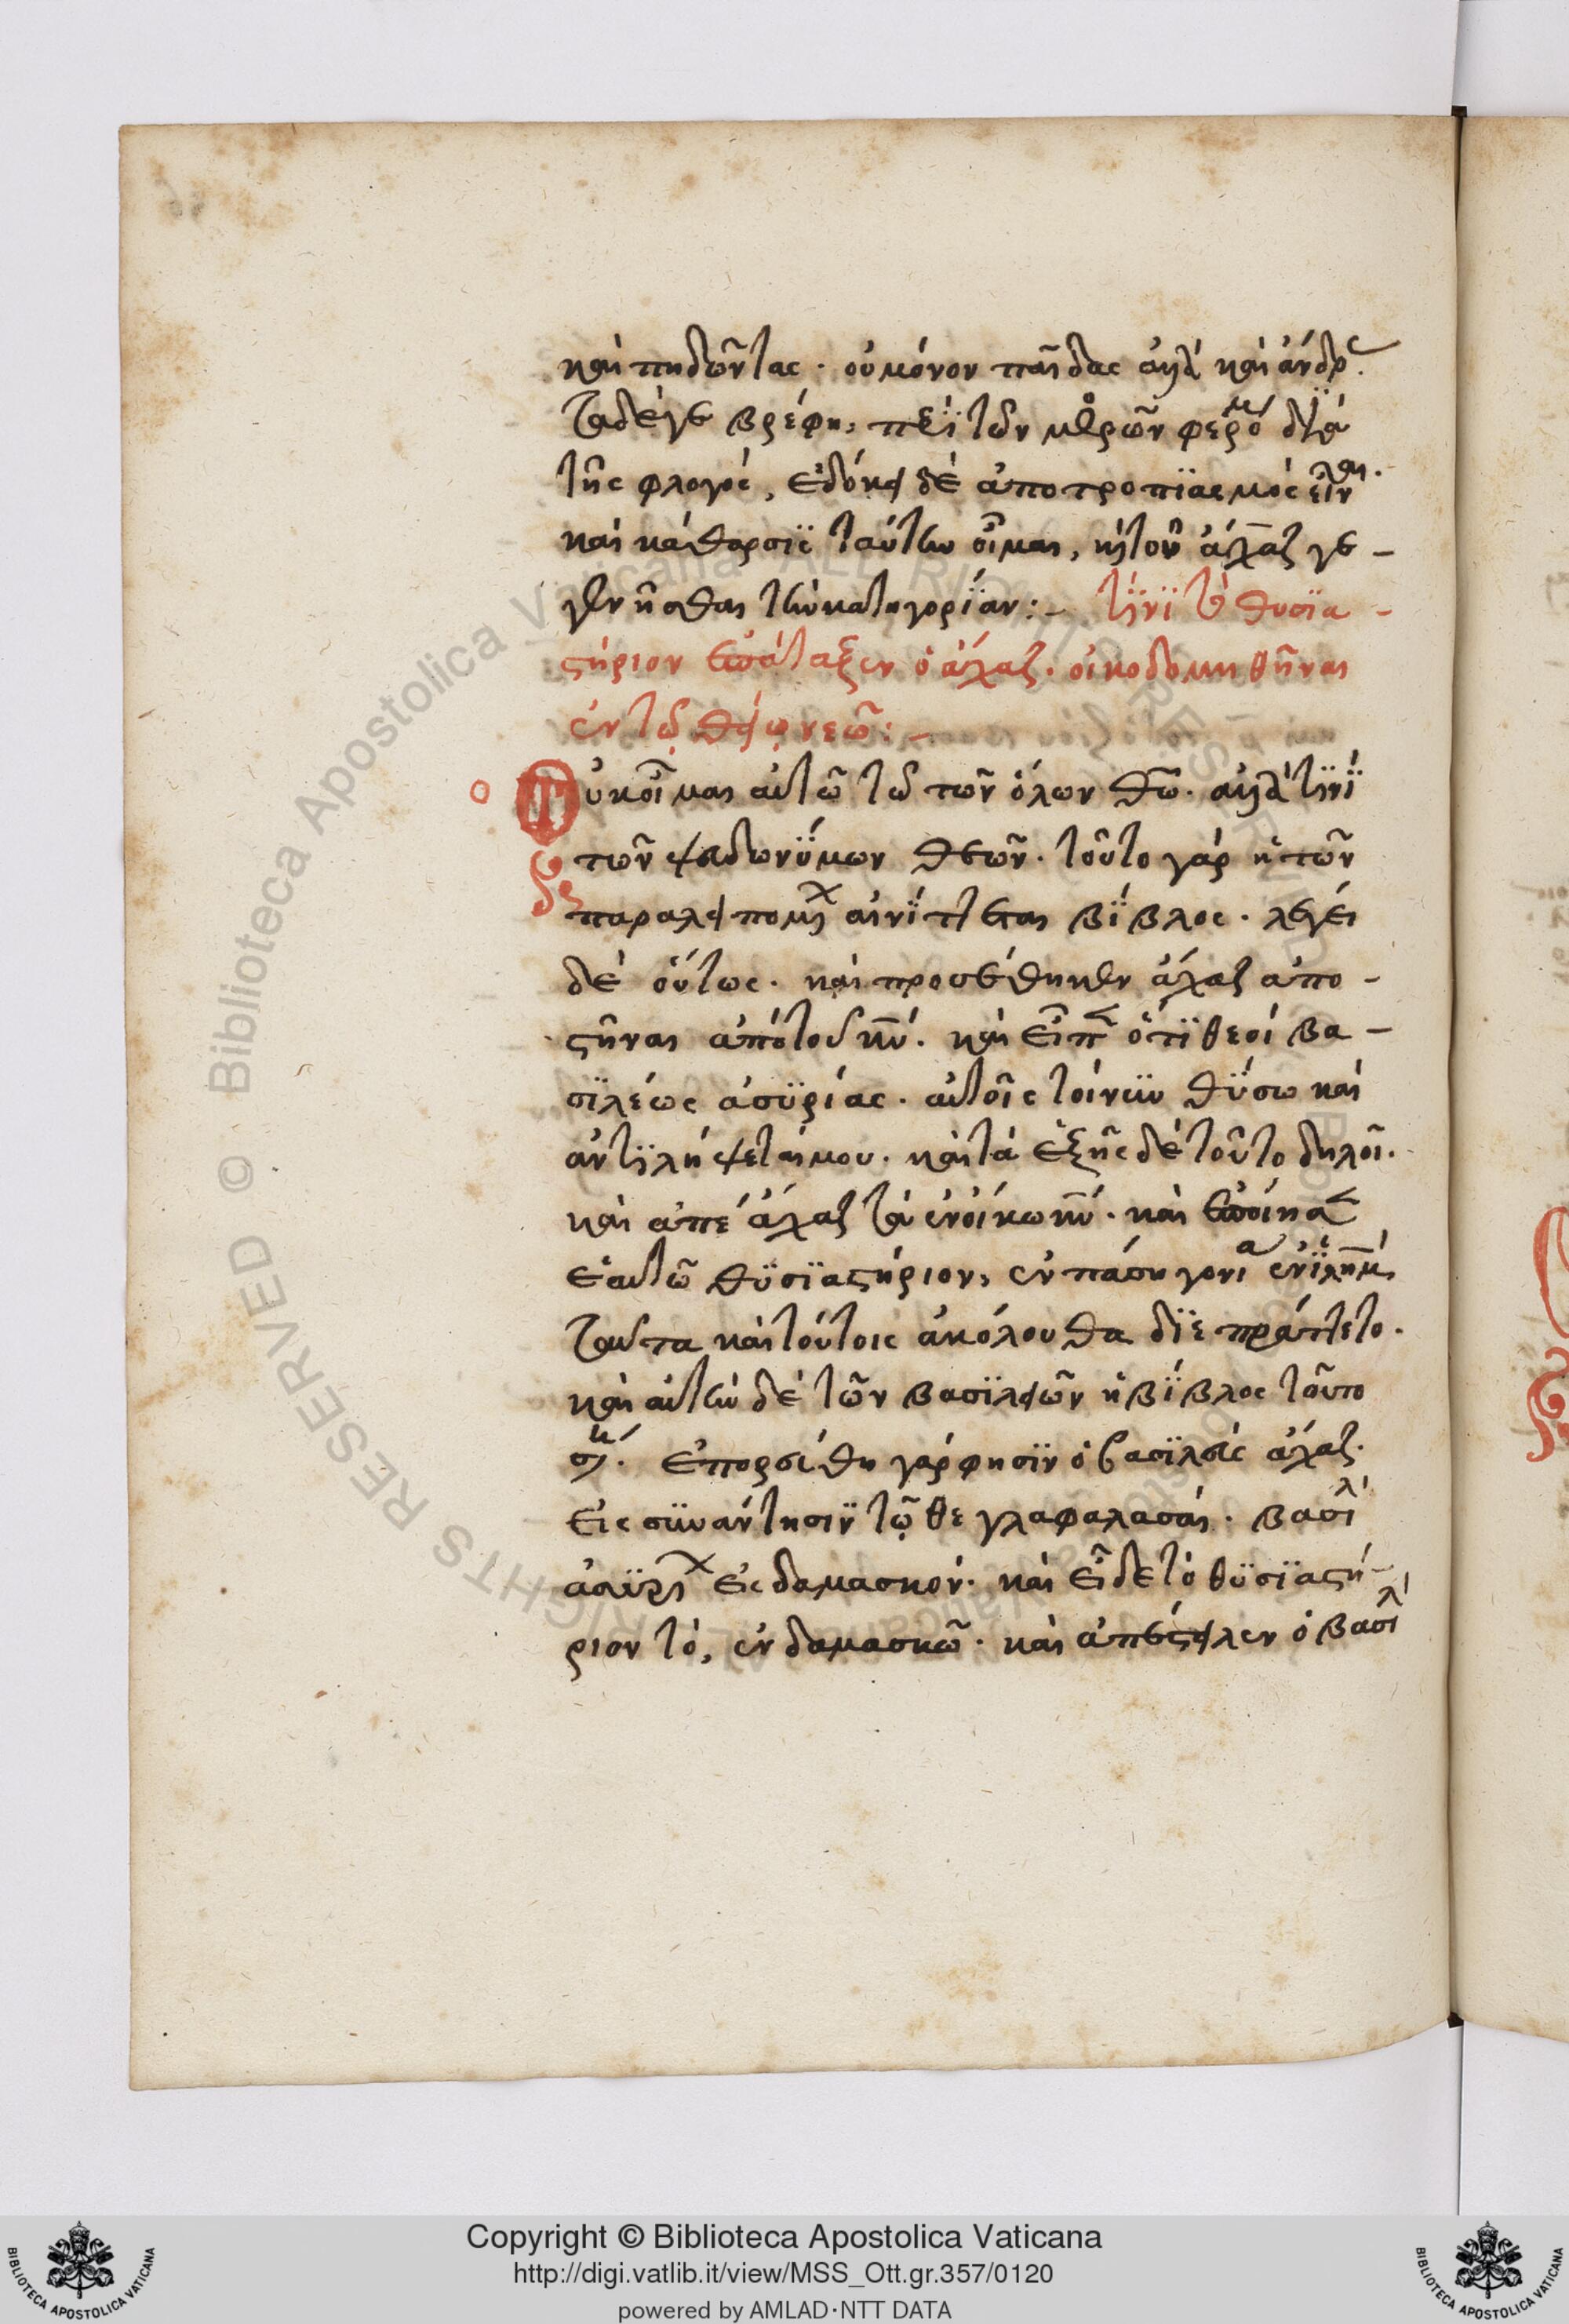 καὶ πηδῶντας · οὐ μόνον παῖδας ἀλλὰ καὶ ἄνδρ
τὰ δέ γε βρέφη, διὰ
τῆς φλογός, ἐδόκει δὲ ἀποτροπϊασμὸς εἶν
καὶ κάθαρσϊς ταύτην οἶμαι, τὸν ἄχαζ γε –
γενῆσθαι τὴν κατηγορίαν :– τίνϊ τὸ θυσϊα –
στήριον ἐπέταξεν ὁ ἄχαζ · οἰκοδομηθῆναι
ἐν τῷ θείῳ νεῶ :–
Οὐκ οἶμαι αὐτῶ τῶ τῶν ὅλων θω · ἀλλὰ τϊνϊ
τῶν ψευδωνΰμων θεῶν · τοῦτο γὰρ ἡ τῶν
παραλειπομ αἰνίττεται βΐβλος · λέγει
δὲ οὕτως · καὶ προσέθηκεν ἄχαζ ἀπο –
στῆναι ἀπὸ τοῦ κυ · καὶ εἶπ ὅτϊ θεοὶ βα –
σϊλέως ἀσϋρίας · αὐτοῖς τοίνϋν θΰσω καὶ
ἀντϊλήψεταί μου · καὶ τὰ ἑξῆς δὲ τοῦτο δηλοῖ ·
καὶ ἄχαζ τὰ ἐν οἴκω κυ · καὶ ἐποίησ
ἑαυτῶ θϋσϊαστήριον, ἐν πάση γονία ἐν ϊλημ,
ταῦτα καὶ τούτοις ἀκόλουθα δϊεπράττετο ·
καὶ αὐτὴ δὲ τῶν βασϊλειῶν ἡ βΐβλος τοῦτο
ἐπορεύθη γάρ φησϊν ὁ βασϊλεὺς ἄχαζ ·
εἰς συνάντησϊν τῷ θεγλαφαλασάρ · βασιλ
ἀσϋρί εἰς δαμασκόν · καὶ εἶδε τὸ θϋσϊαστή –
ριον τὸ, ἐν δαμασκῶ · καὶ ἀπέστειλεν ὁ βασιλ
Copyright © Biblioteca Apostolica Vaticana
http://digi.vatlib.it/view/MSS_Ott.gr.357/0120
powered by AMLAD·NTT DATA
BIBLIOTECA APOSTOLICA VATICANA
BIBLIOTECA APOSTOLICA VATICANA